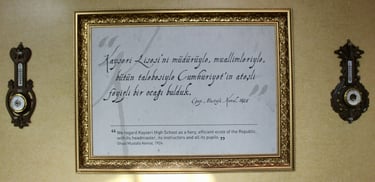 Kayseri Lisesi'ni müdürüyle, muallimleriyle,
bütün talebesiyle Cumhuriyet'in ateşli
feyizli bir ocağı bulduk.
Gazi Mustafa Kemal, 1924
"We regard Kayseri High School as a fiery, efficient ecole of the Republic,
with its headmaster, its instructors and all its pupils."
Ghazi Mustafa Kemal, 1924.